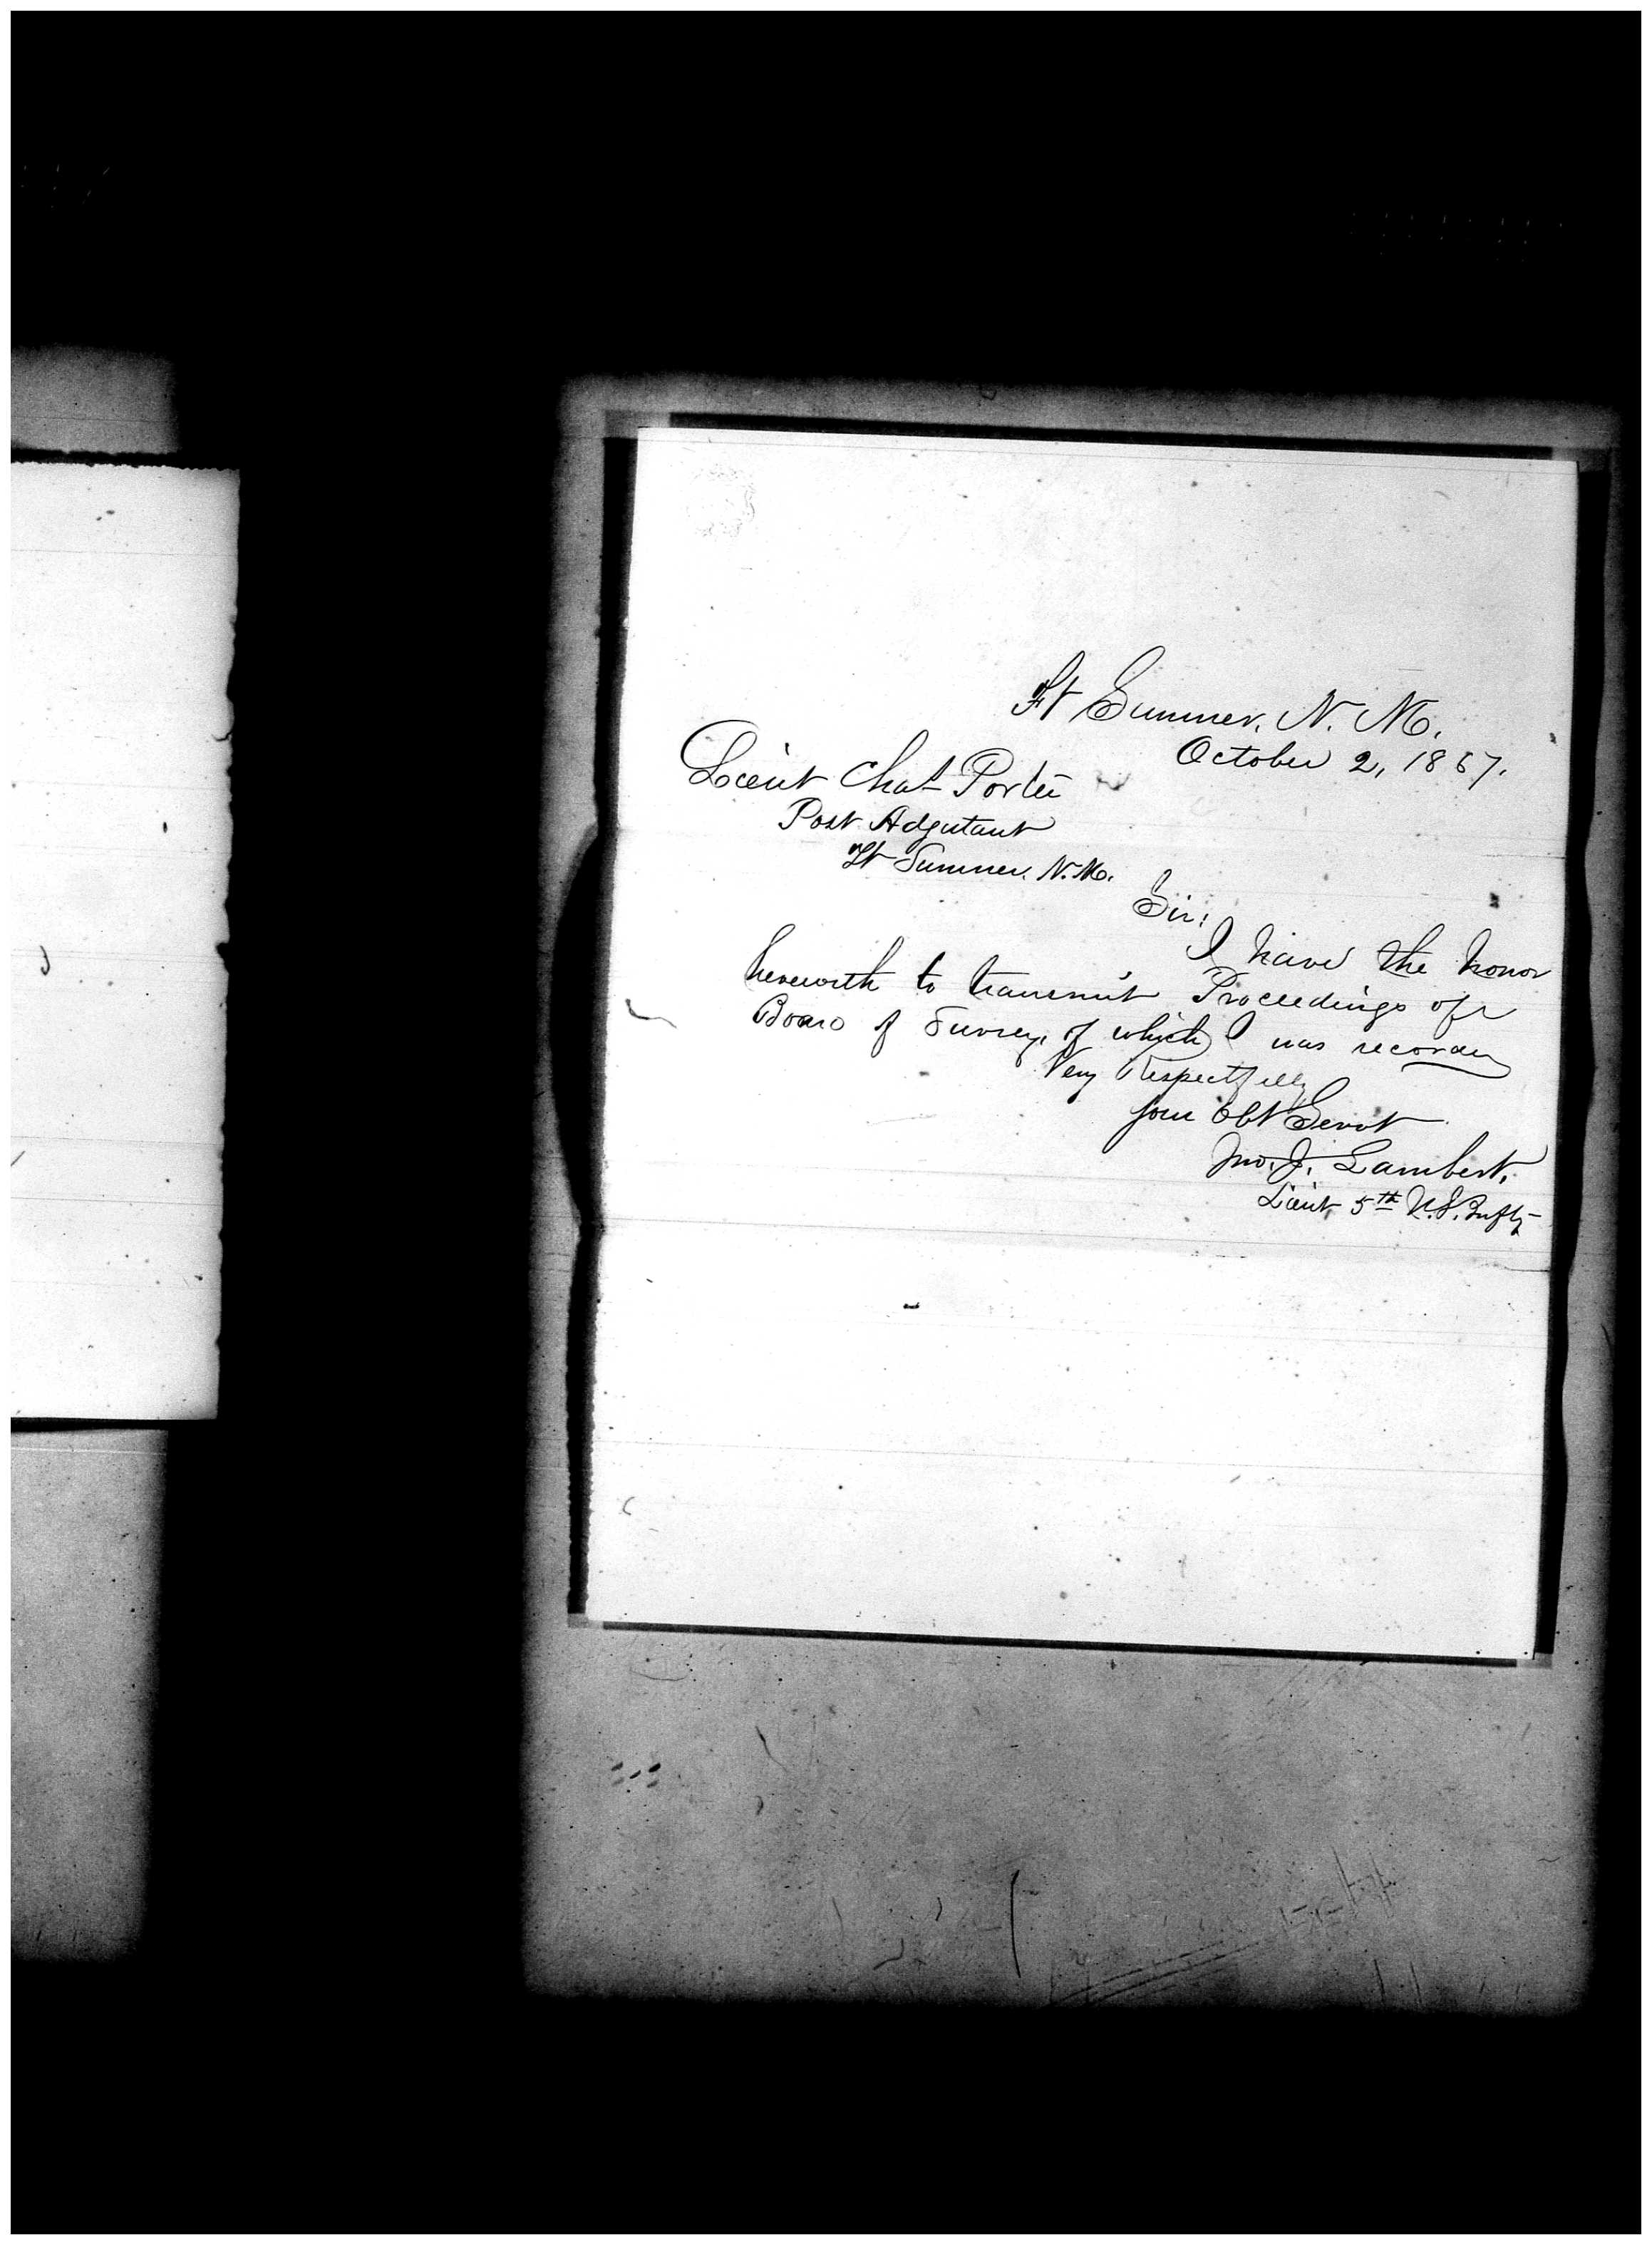 Ft Sumner, N. M.
October 2, 1867.
Lieut Chas Porter
Post Adjutant
Ft Sumner, N. M.
Sir:
I have the honor
herewith to transmit Proceedings of a
Board of Survey, of which I was recorder
Very Respectfully
Your Obt Servt
Jno. J. Lambert,
Lieut 5th U.S. Infty